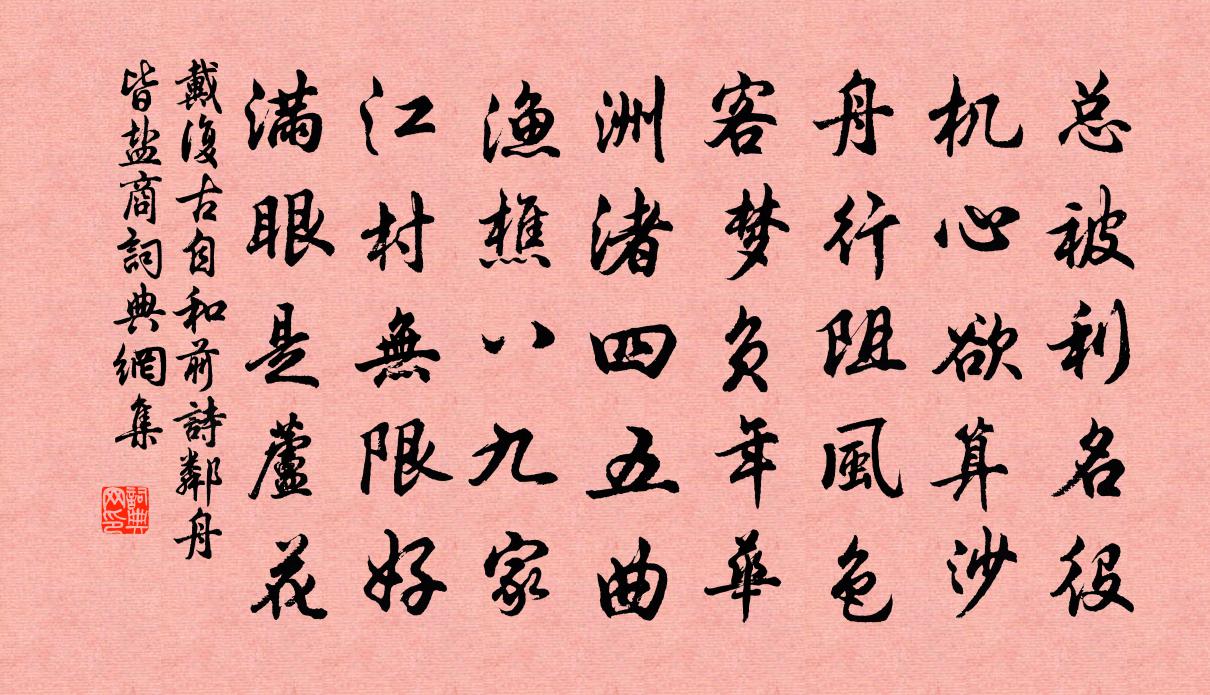 总被利名役
机心欲算沙
舟行阻風色
客梦负年華
洲渚四五曲
漁樵八九家
江村無限好
满眼是蘆花
戴復古自和前詩鄰舟
皆盐商詞典網集
詞典
网印